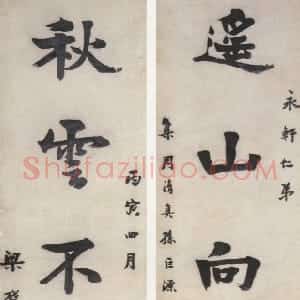 永軒仁弟
遙山向
集周清真孫巨源
秋雲不
丙寅四月
梁啓
Shufaziliao.com